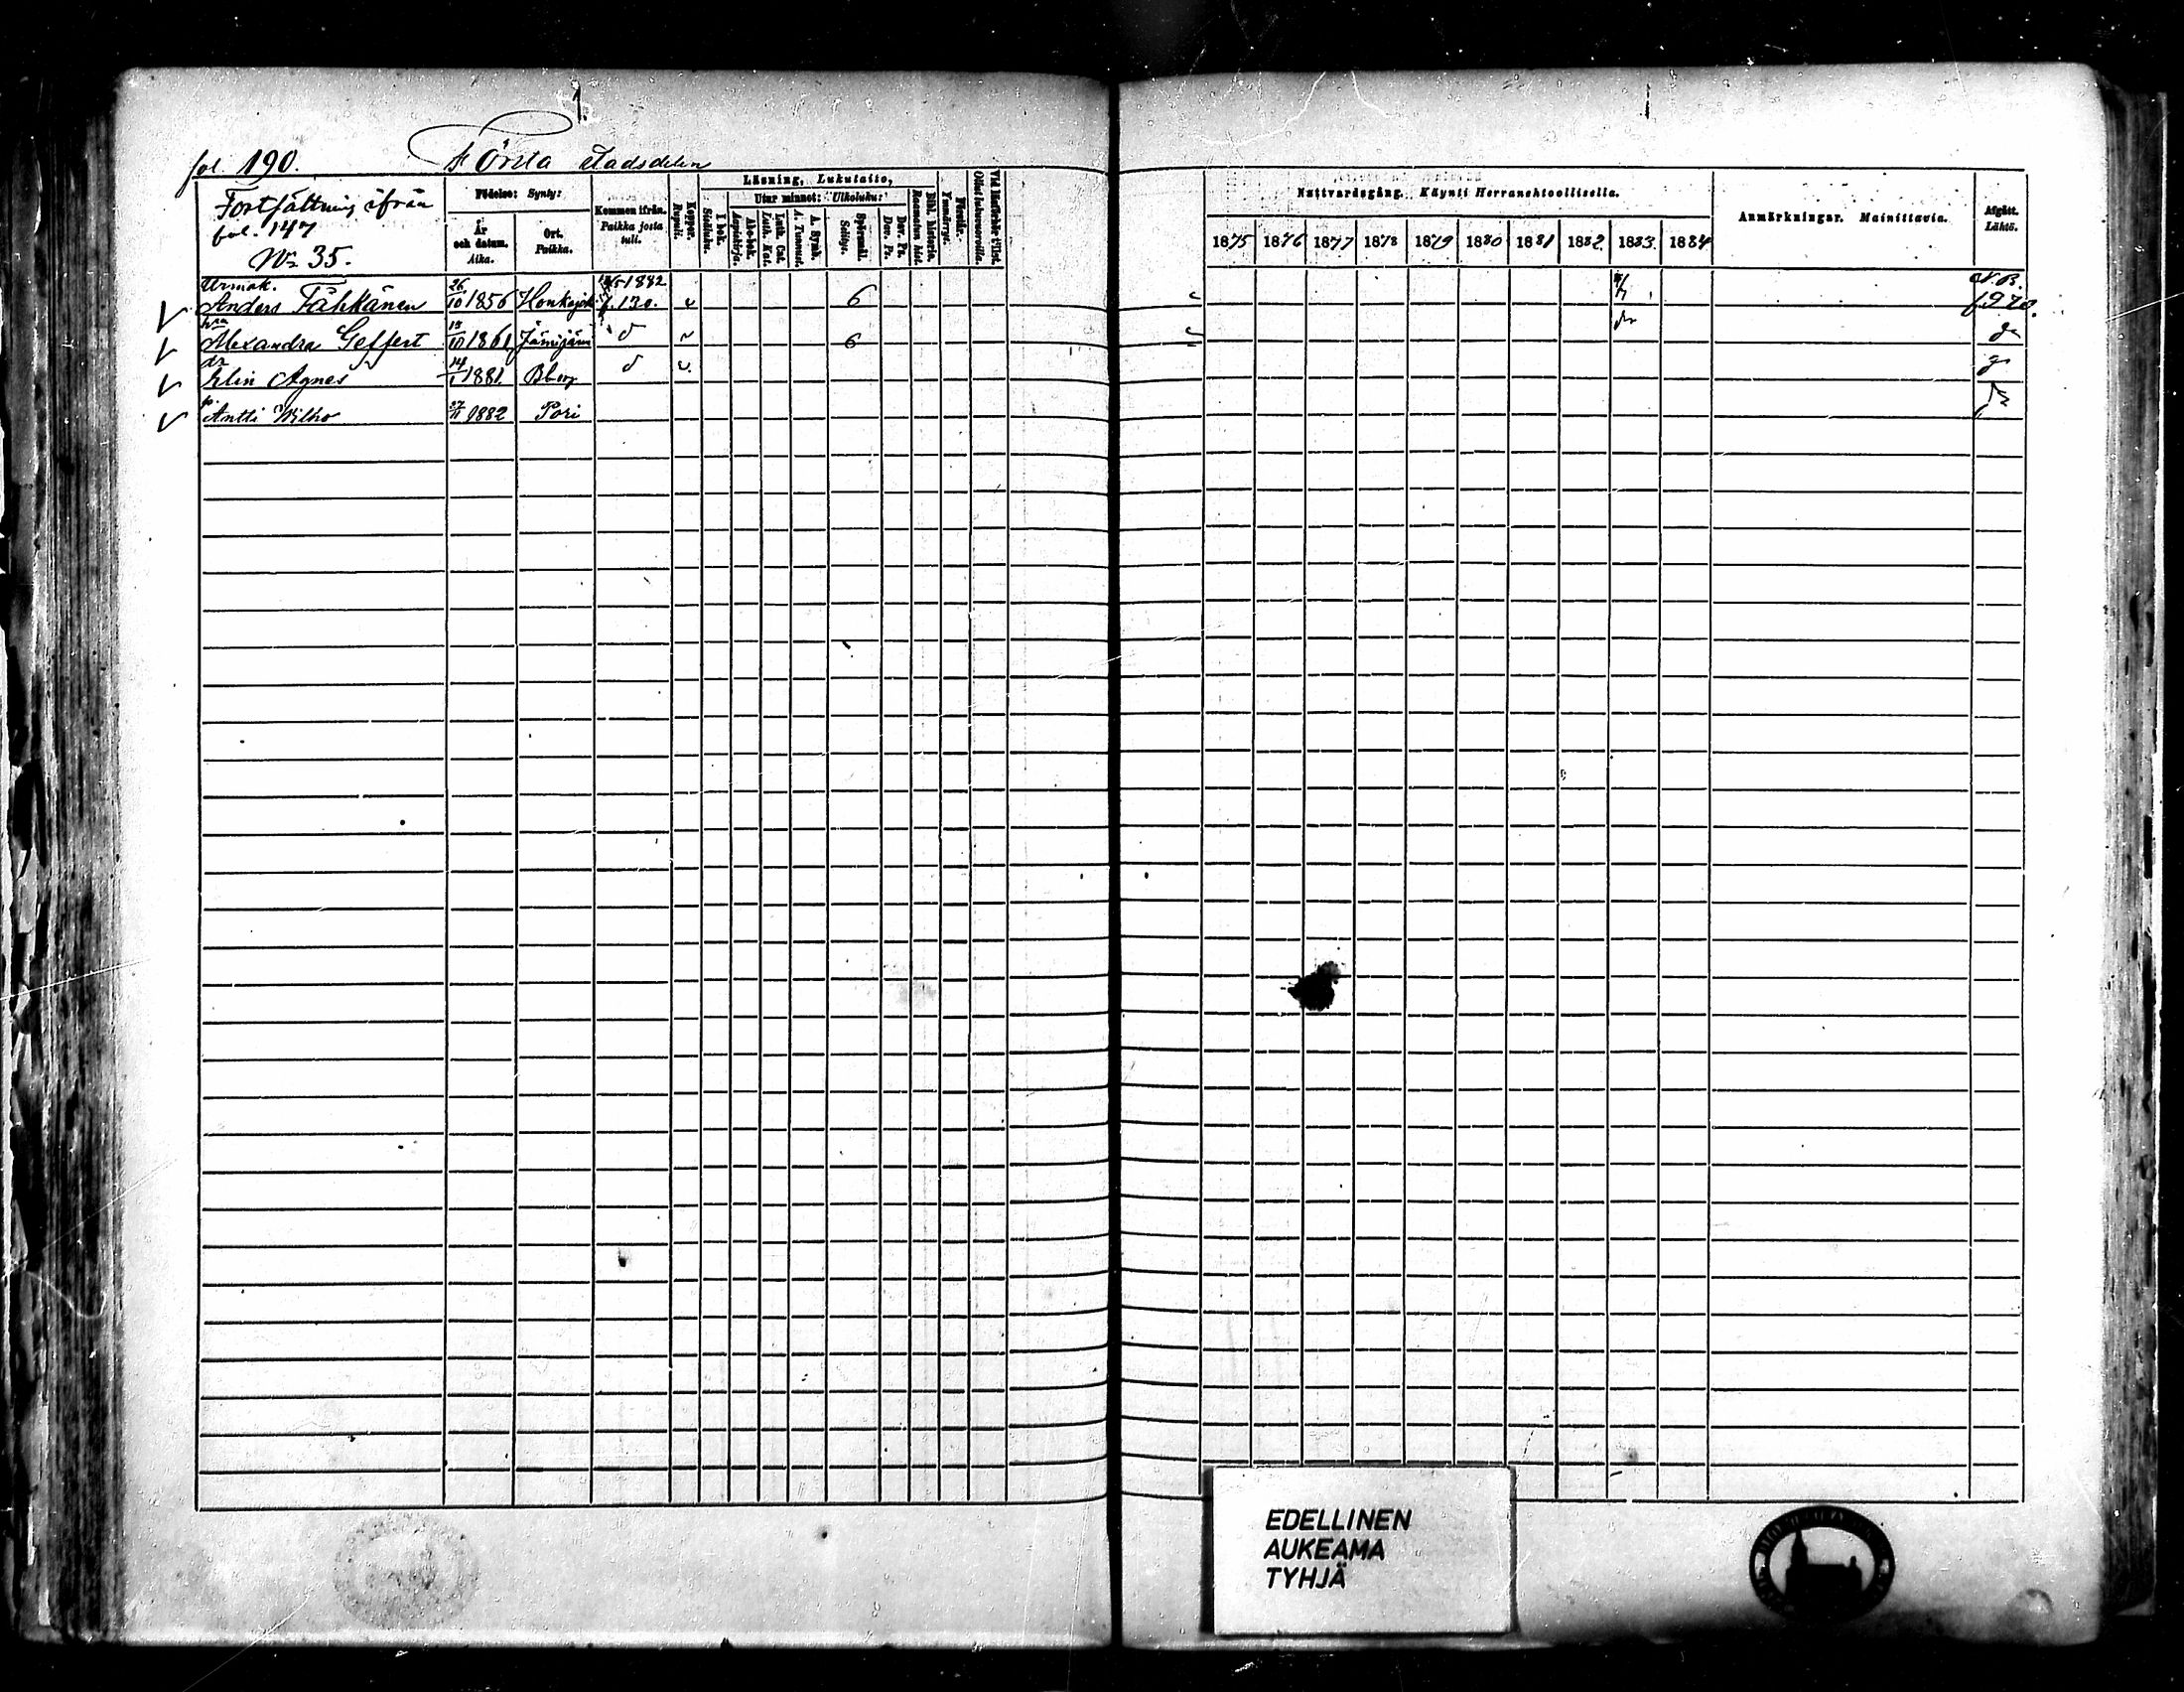 1.
fol. 190. Första stadsdelen
Fortsättning ifrån
fol. 147
No 35.
Födelse: Synty:
År
och datum.
Aika.
Ort.
Paikka.
Kommen ifrån.
Paikka josta
tuli.
Koppor.
Rupuli.
Läsning, Lukutaito,
I bok.
Sisäluku.
Utur minnet: Ulkoluku:
Abc-bok.
Aapiskirja.
Luth. Cat.
Luth. Kat.
A. Symb.
A. Tunnust.
Spörsmål.
Selitys.
Dav. Ps.
Dav. Ps.
Bibl. historia.
Raamatun hist.
Förstår.
Ymmärryst.
Nattvardsgång. Käynti Herranehtoollisella.
1875 1876 1877 1878 1879 1880 1881 1882. 1883. 1884
Anmärkningar. Mainittavia.
Afgått.
Lähtö.
Urmak.
Anders Tähkänen 26/10 1856 Honkajok 130. 6
Alexandra Geffert 15/10 1861 Jämijärvi 6
Elin Agnes 1881 Bborg
Antti Vilho 1882 Pori
EDELLINEN
AUKEAMA
TYHJÄ